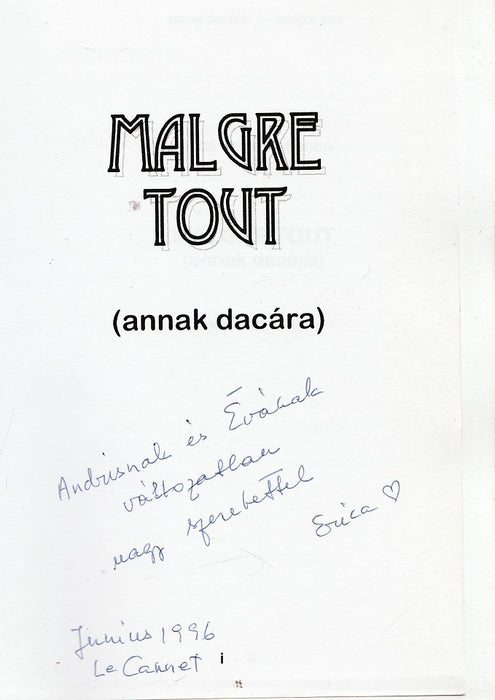 MALGRE
TOUT
(annak dacára)
Andrisnak és Évának
változatlan
nagy szeretettel
Erica ♡
Június 1996
Le Cannet
i